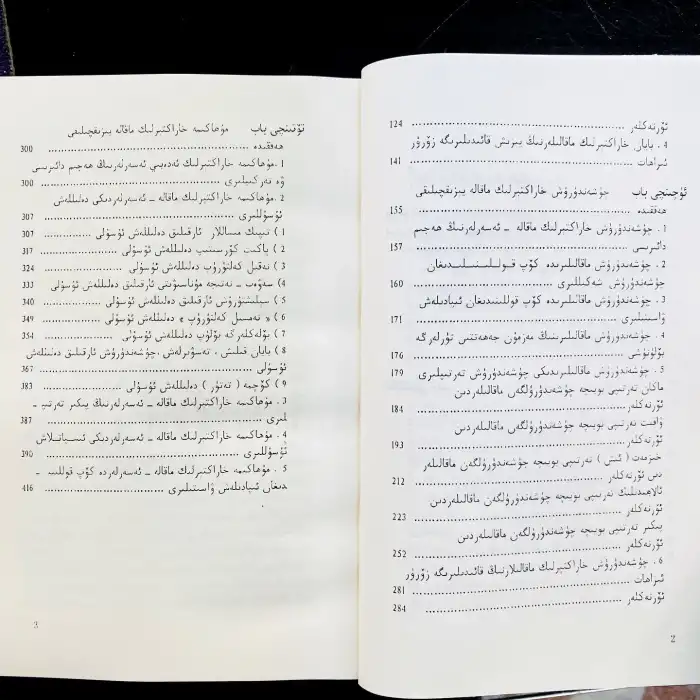 ئۆرنەكلەر ........ 124
4 . بايان خاراكتېرلىك ماقالىلەرنىڭ يېزىش قائىدىلىرىگە زۆرۈر
ئىزاھات ........ 141
ئۈچىنچى باب چۈشەندۈرۈش خاراكتېرلىك ماقالە يېزىقچىلىقى
ھەققىدە ........ 155
1 . چۈشەندۈرۈش خاراكتېرلىك ماقالە ـ ئەسەرلەرنىڭ ھەجىم
دائىرىسى ........ 157
2 . چۈشەندۈرۈش ماقالىلىرىدە كۆپ قوللىنىلىدىغان
چۈشەندۈرۈش شەكىللىرى ........ 160
3 . چۈشەندۈرۈش ماقالىلىرىدە كۆپ قوللىنىدىغان ئىپادىلەش
ۋاستىلىرى ........ 171
4 . چۈشەندۈرۈش ماقالىلىرىنىڭ مەزمۇن جەھەتتىن تۈرلەرگە
بۆلۈنۈشى ........ 176
5 . چۈشەندۈرۈش ماقالىلىرىدىكى چۈشەندۈرۈش تەرتىپلىرى 179
ماكان تەرتىپى بويىچە چۈشەندۈرۈلگەن ماقالىلەردىن
ئۆرنەكلەر ........ 184
ۋاقىت تەرتىپى بويىچە چۈشەندۈرۈلگەن ماقالىلەردىن
ئۆرنەكلەر ........ 193
خىزمەت ( ئىش ) تەرتىپى بويىچە چۈشەندۈرۈلگەن ماقالىلەر
دىن ئۆرنەكلەر ........ 212
ئالاھىدىلىك تەرتىپى بويىچە چۈشەندۈرۈلگەن ماقالىلەردىن
ئۆرنەكلەر ........ 223
پىكىر تەرتىپى بويىچە چۈشەندۈرۈلگەن ماقالىلەردىن
ئۆرنەكلەر ........ 252
6 . چۈشەندۈرۈش خاراكتېرلىك ماقالىلارنىڭ قائىدىلىرىگە زۆرۈر
ئىزاھات ........ 281
ئۆرنەكلەر ........ 284
2
تۆتىنچى باب مۇھاكىمە خاراكتېرلىك ماقالە يېزىقچىلىقى
ھەققىدە ........ 300
1 . مۇھاكىمە خاراكتېرلىك ئەدەبىي ئەسەرلەرنىڭ ھەجىم دائىرىسى
ۋە تەركىپلىرى ........ 300
2 . مۇھاكىمە خاراكتېرلىك ماقالە ـ ئەسەرلەردىكى دەلىللەش
ئۇسۇللىرى ........ 307
1 ) تىپىك مىساللار ئارقىلىق دەلىللەش ئۇسۇلى ........ 307
2 ) پاكىت كۆرسىتىپ دەلىللەش ئۇسۇلى ........ 317
3 ) نەقىل كەلتۈرۈپ دەلىللەش ئۇسۇلى ........ 324
4 ) سەۋەب ـ نەتىجە مۇناسىۋىتى ئارقىلىق دەلىللەش ئۇسۇلى 333
5 ) سېلىشتۇرۇش ئارقىلىق دەلىللەش ئۇسۇلى ........ 340
6 ) « تەمسىل كەلتۈرۈپ » دەلىللەش ئۇسۇلى ........ 349
7 ) بۆلەكلەرگە بۆلۈپ دەلىللەش ئۇسۇلى ........ 354
8 ) بايان قىلىش ، تەسۋىرلەش ، چۈشەندۈرۈش ئارقىلىق دەلىللەش
ئۇسۇلى ........ 367
9 ) كۆچمە ( تەتۈر ) دەلىللەش ئۇسۇلى ........ 383
3 . مۇھاكىمە خاراكتېرلىك ماقالە ـ ئەسەرلەرنىڭ پىكىر تەرتىپ ـ
لىرى ........ 387
4 . مۇھاكىمە خاراكتېرلىك ماقالە ـ ئەسەرلەردىكى ئىسپاتلاش
ئۇسۇللىرى ........ 390
5 . مۇھاكىمە خاراكتېرلىك ماقالە ـ ئەسەرلەردە كۆپ قوللىنى ـ
دىغان ئىپادىلەش ۋاستىلىرى ........ 416
3